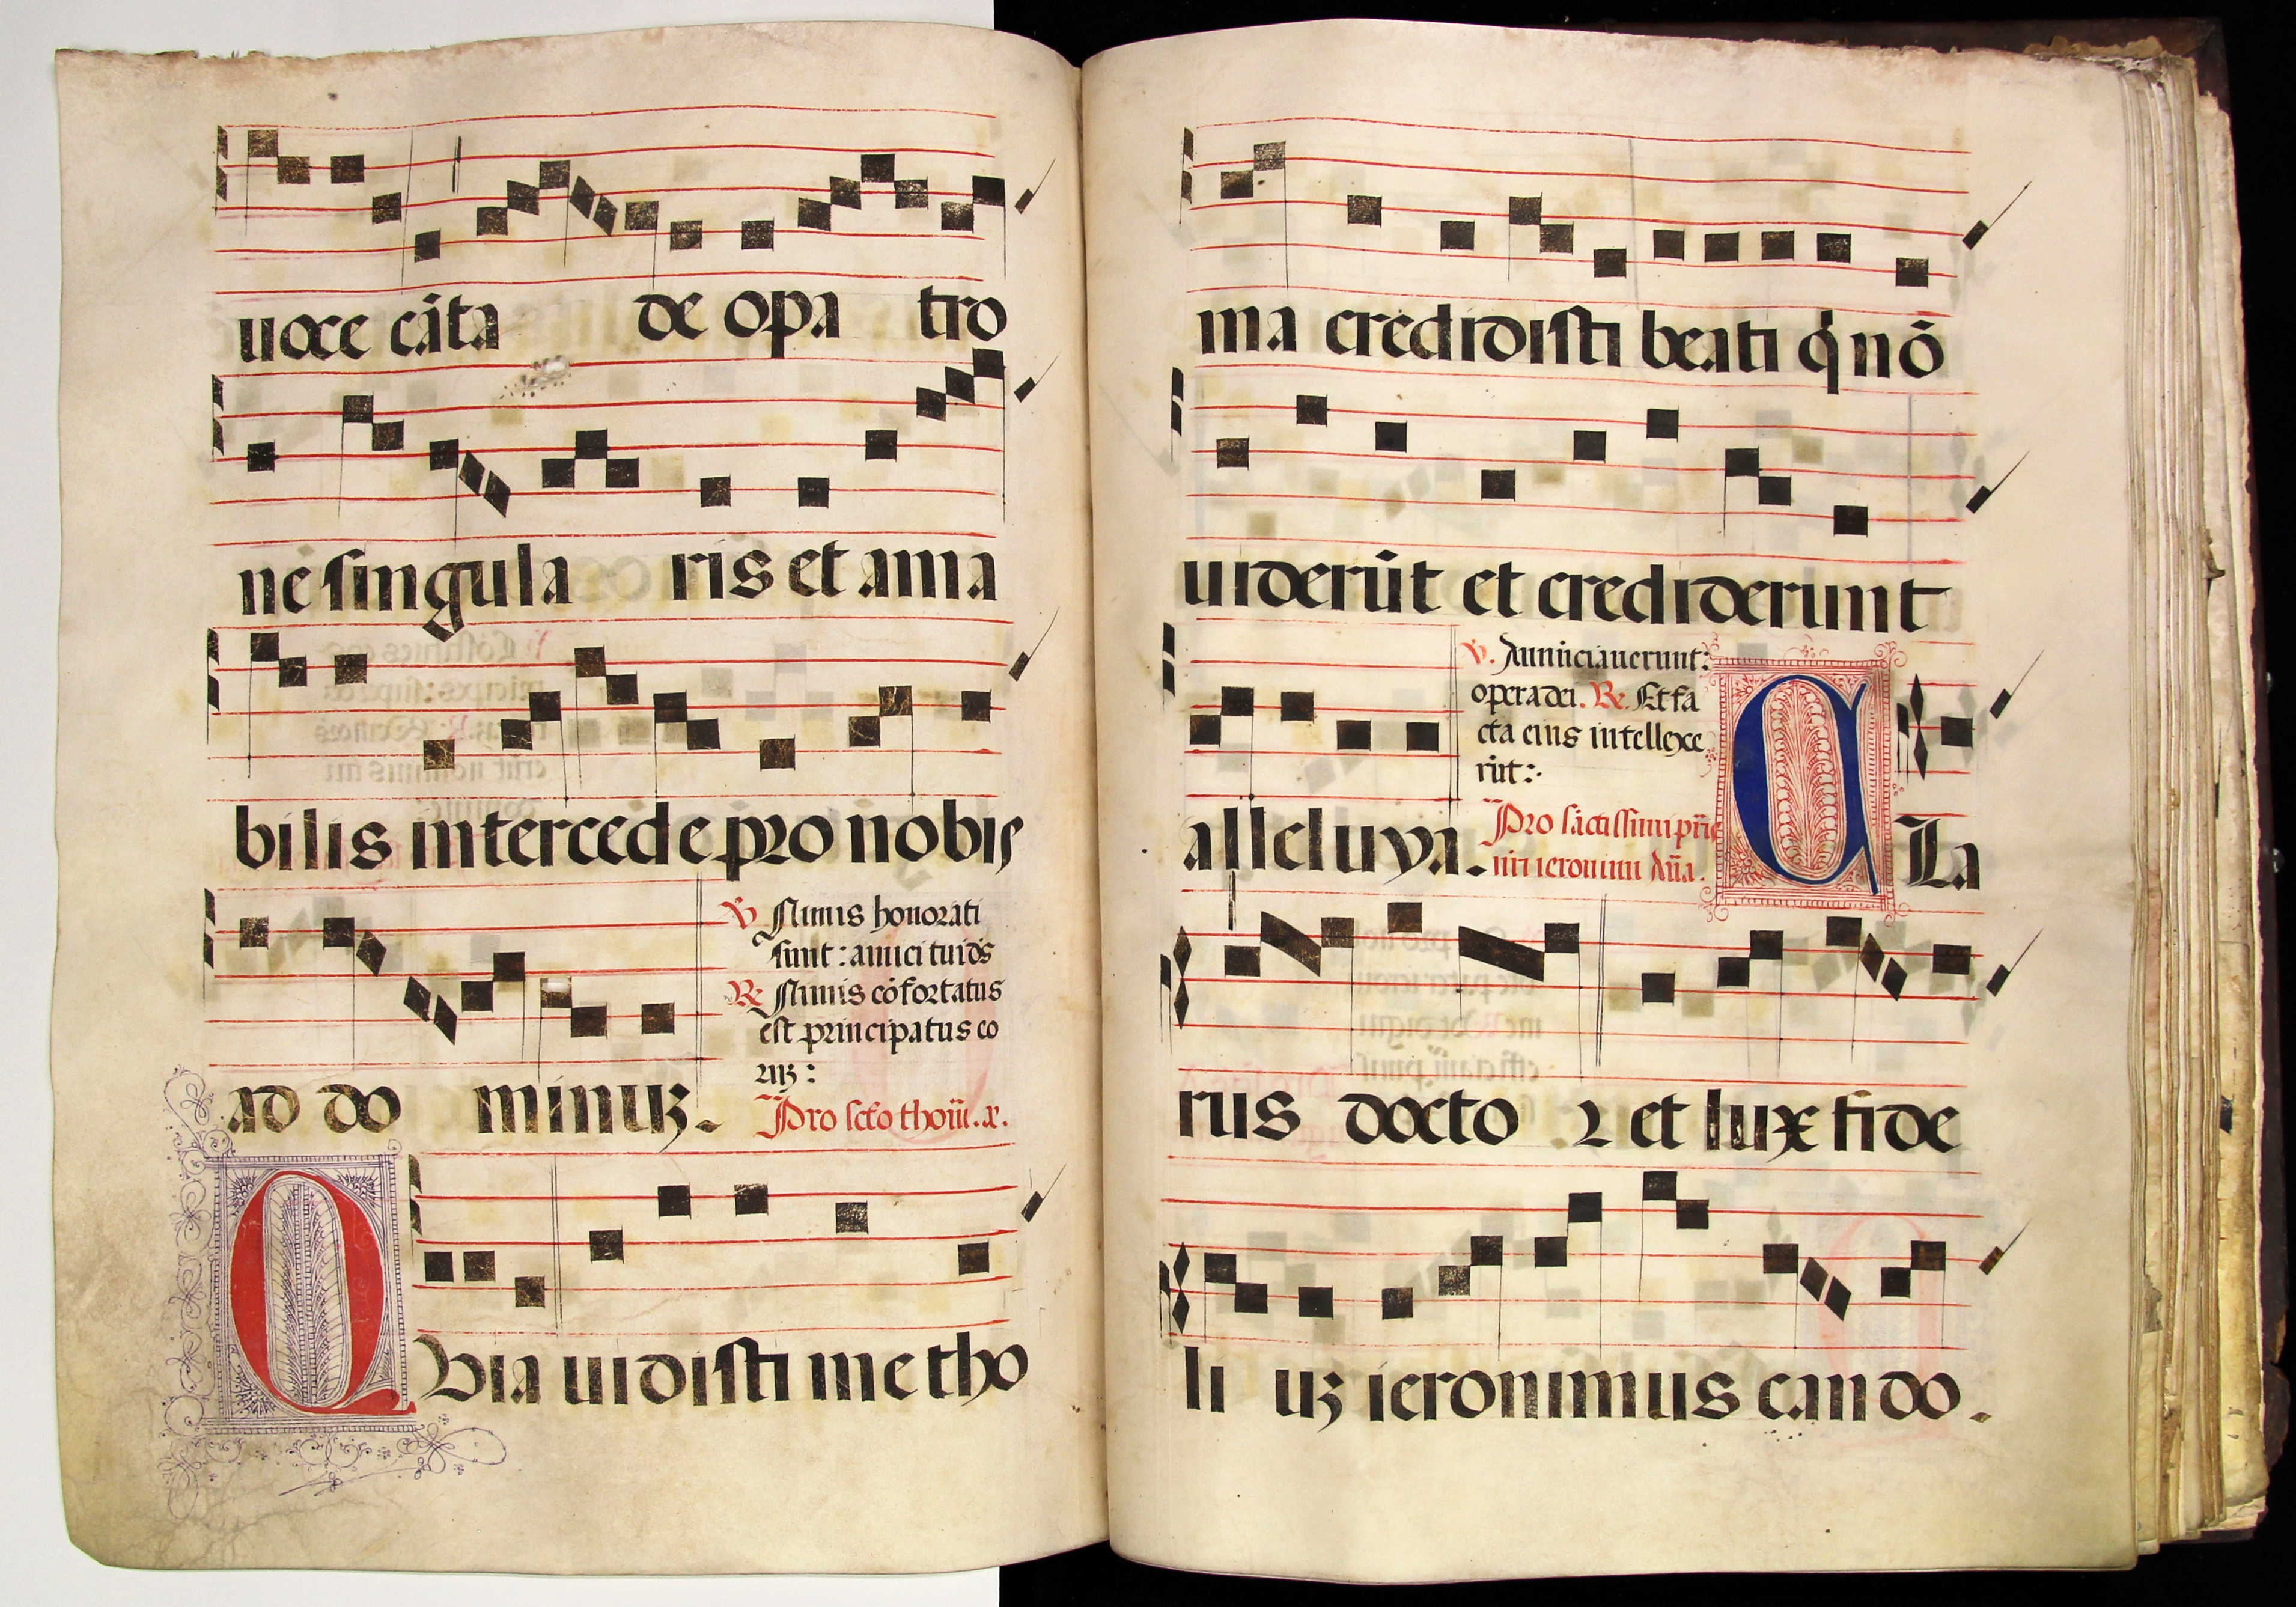 uoce cãta de opa tro
ne singula ris et ama
bilis intercede pro nobis
ad do minuꝫ.
℣ Nimis honorati
sunt: amici tui ds̄
℟ Nimis cõfortatus
est principatus eo
ꝛuꝫ:
Pro scto thom̃. a.
Quia uidisti me tho
ma credidisti beati q̇ nõ
uiderũt et crediderunt
alleluya.
℣. Anũciauerunt:
opera dei. ℟. Et fa
cta eius intellexe
rũt:
Pro sãctissimi pr̃is
nr̃i ieronimi Añã.
CLa
rus docto ꝛ et lux fide
li uꝫ ieronimus cando.